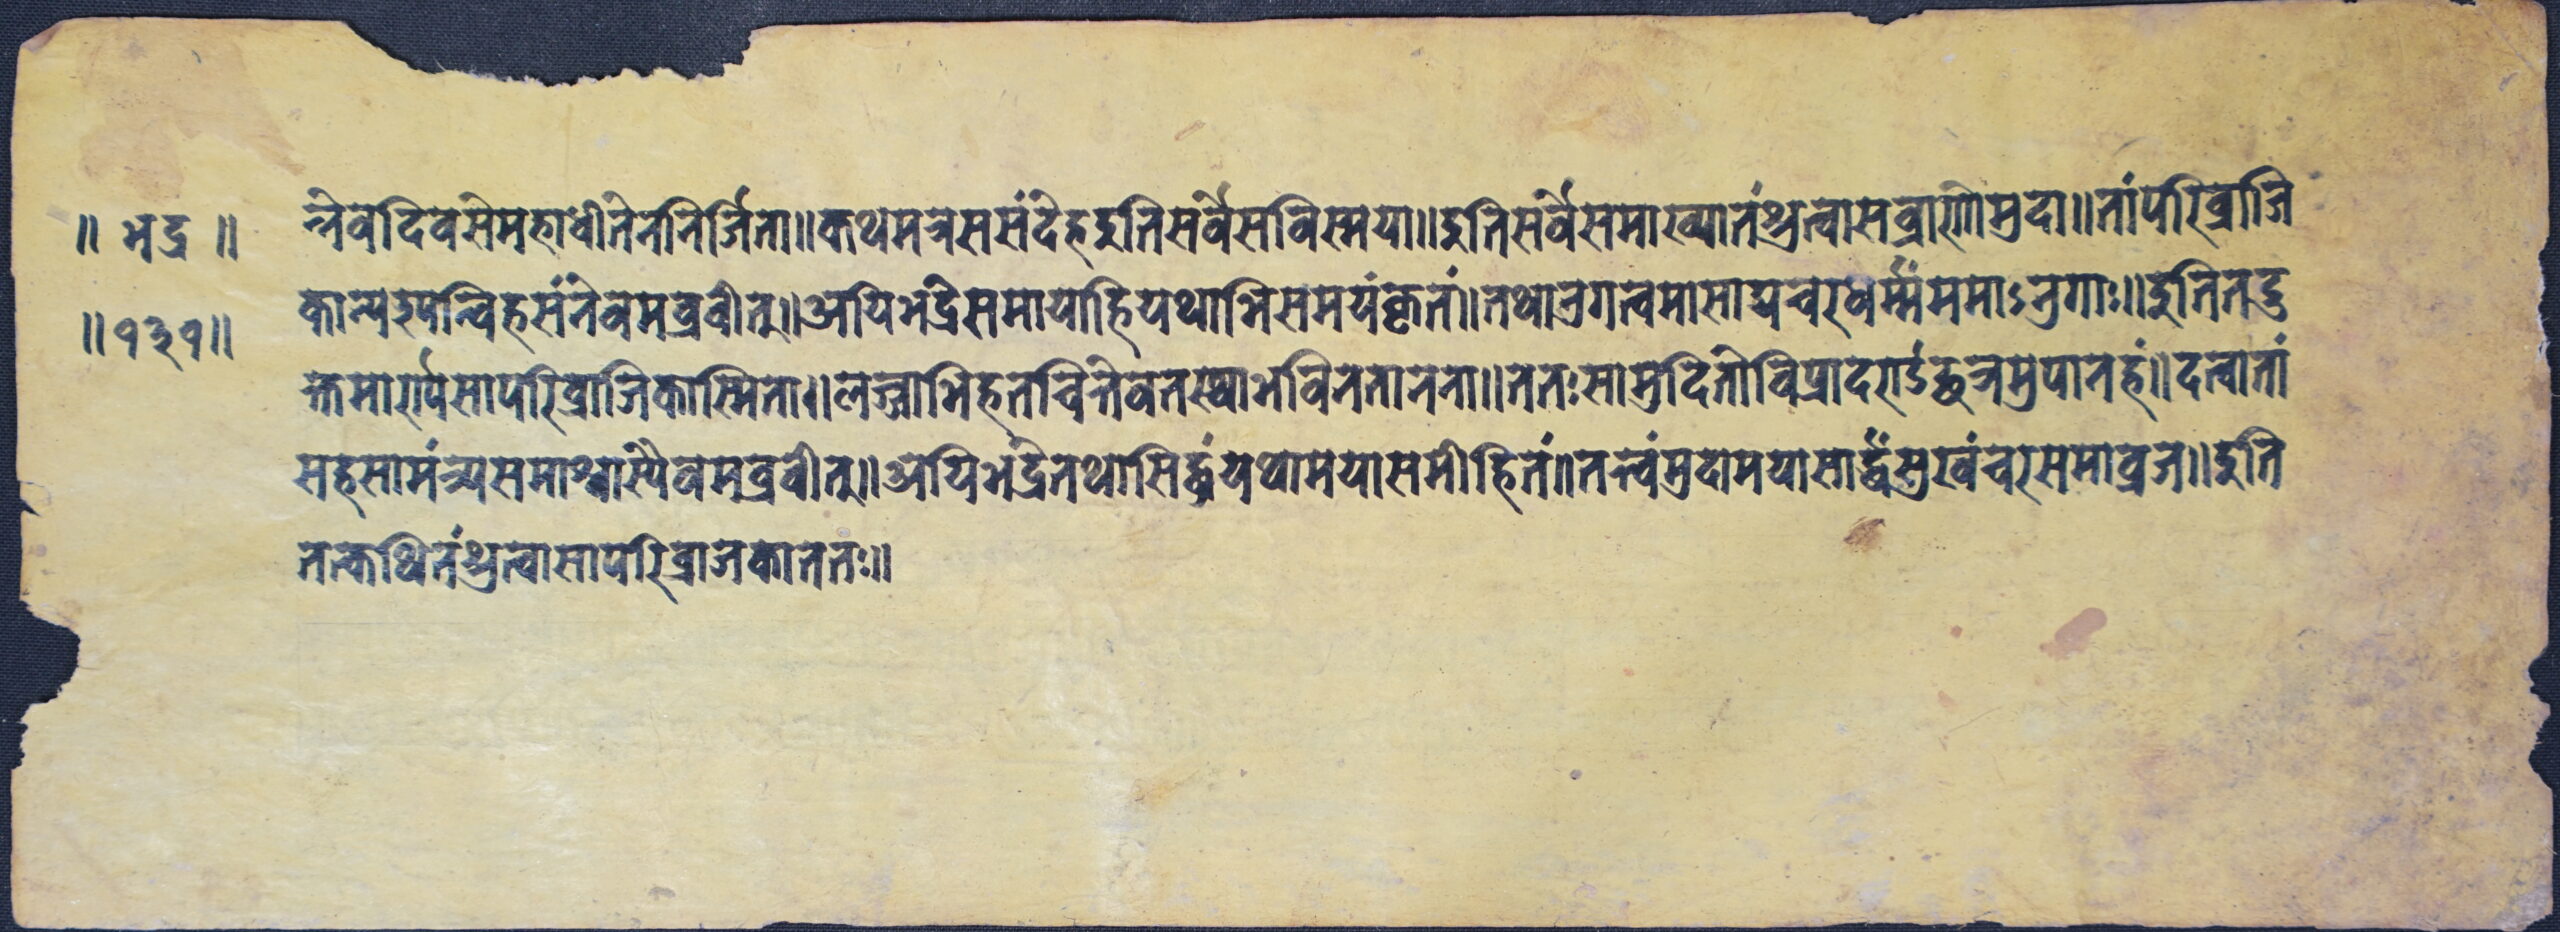 ॥ भद्र ॥
॥१३१॥
न्नेवदिवसेमहाधीतेननिर्जिता॥कथमत्रेससंदेहइतिसर्वेसविस्मया॥इतिसर्वेसमाख्यातंश्रुत्वासब्राह्मणीमुदा॥तांपरिव्राजि
कान्यरूपन्विहसंनेवमब्रवीत्॥अयिभद्रेसमायाहियथाभिसमयंकृतं॥तथात्रगत्वमासाद्यचरधर्म्मंममाऽनुगाः॥इतितदु
क्तमाकर्ण्यसापरिव्राजिकास्मिता॥लज्जाभिहतचित्तेवतस्थाभविनतानना॥ततःसामुदितीविप्रादराडंछत्रमुपानहं॥दत्वातां
सहसामंत्र्यसमाश्वास्यैवमब्रवीत्॥अयिभद्रेतथासिद्धंयथामयासमीहितं॥तत्त्वंमुदामयासार्द्धंसुखंचरसमाव्रज॥इति
तत्कथितंश्रुत्वासापरिव्राजकाततः॥